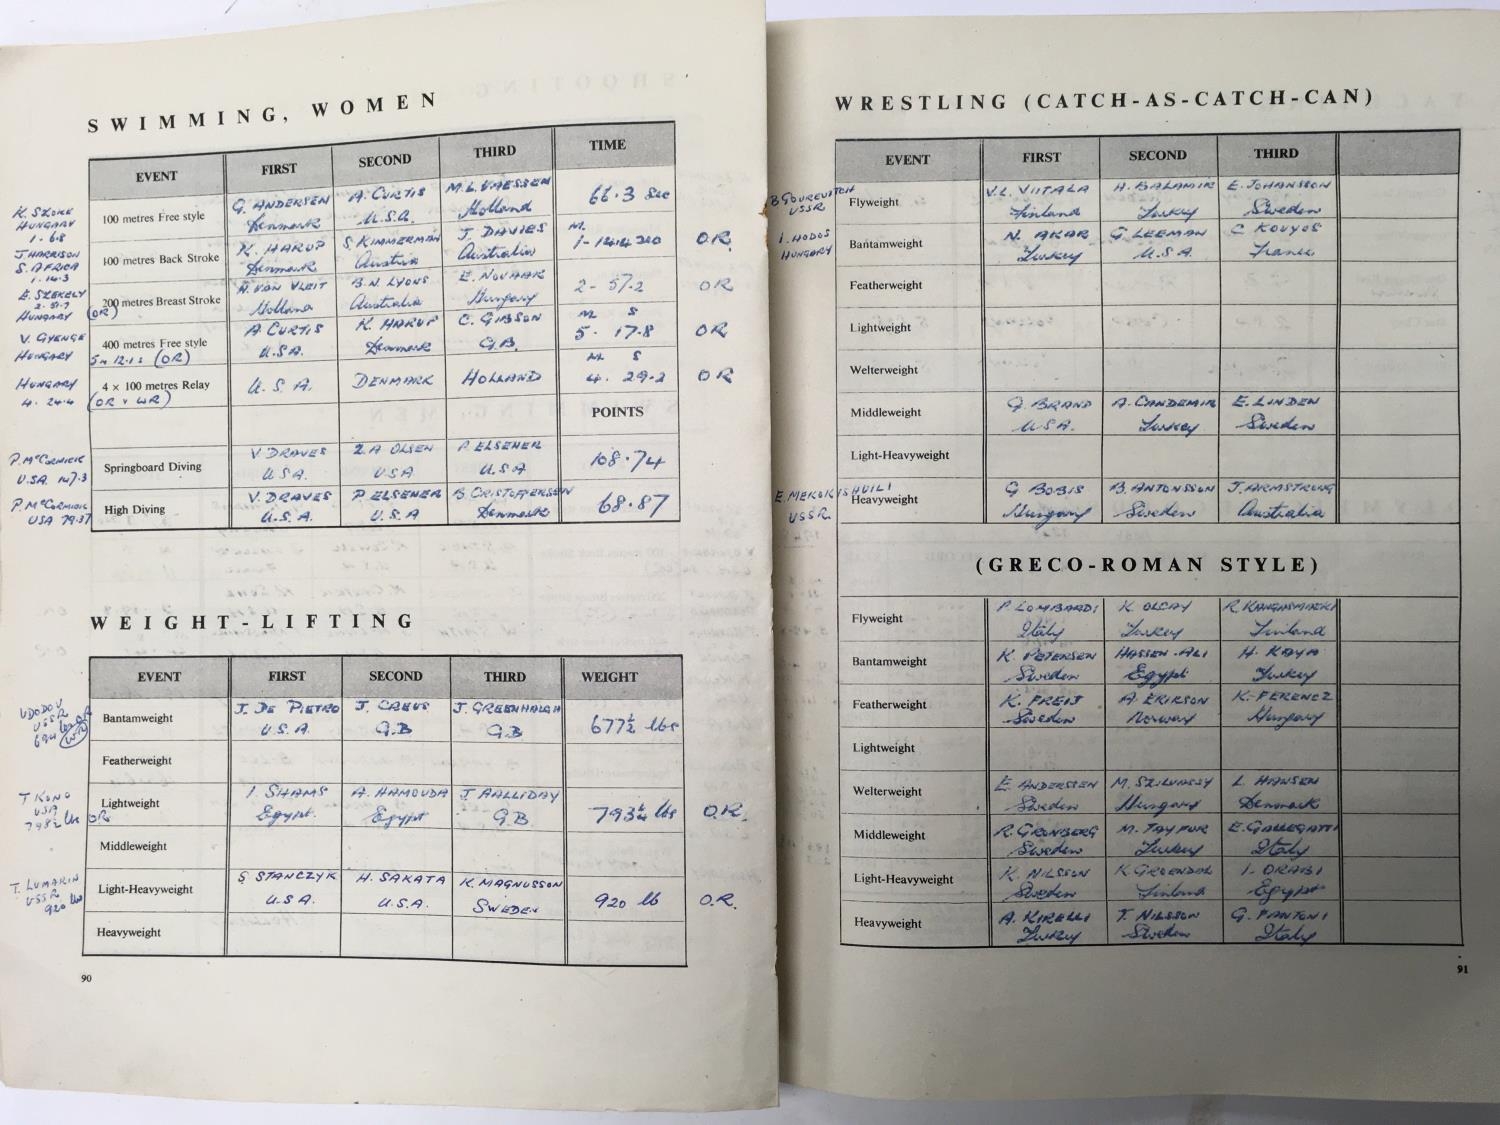 SWIMMING, WOMEN
EVENT FIRST SECOND THIRD TIME
K. SZOKE
HUNGARY
1. 6.8
100 metres Free style G. ANDERSEN A. CURTIS M.L. VAESSEN 66.3 Sec
Denmark U.S.A. Holland
J. HARRISON
S. AFRICA
1. 14.3
100 metres Back Stroke K. HARUP S. KIMMERMAN J. DAVIES M. O.R.
Denmark Austria Australia
E. SZEKELY
2. 51.7
HUNGARY (OR)
200 metres Breast Stroke N. VAN VLEIT B.N. LYONS E. NOVAAK 2 - 57.2 OR
Holland Australia Hungary
V. GYENGE
HUNGARY 5m 12.1s (OR)
400 metres Free style A CURTIS K. HARUP C. GIBSON M S OR
U.S.A. Denmark G.B. 5. 17.8
HUNGARY
4. 24.4 (OR & WR)
4 × 100 metres Relay U.S.A. DENMARK HOLLAND M S OR
4. 29.2
POINTS
P. McCORMICK
U.S.A. 147.3
Springboard Diving V. DRAVES Z.A OLSEN P. ELSENER 108.74
USA USA U.S.A
P. McCORMICK
USA 79.37
High Diving V. DRAVES P. ELSENER B. CRISTOFFERSEN 68.87
U.S.A. U.S.A Denmark
WEIGHT-LIFTING
EVENT FIRST SECOND THIRD WEIGHT
UDODOV
USSR
694 lbs
Bantamweight J. DE PIETRO J. CREUS J. GREENHALGH 677½ lbs
U.S.A. G.B G.B
Featherweight
T KONO
USA
798½ lbs OR
Lightweight I. SHAMS A. HAMOUDA J. HALLIDAY 793¼ lbs O.R.
Egypt. Egypt G.B
Middleweight
T. LUMAKIN
USSR
920 lbs
Light-Heavyweight S STANCZYK H. SAKATA K. MAGNUSSON 920 lb O.R.
U.S.A. U.S.A. SWEDEN
Heavyweight
90
WRESTLING (CATCH-AS-CATCH-CAN)
EVENT FIRST SECOND THIRD
B GOUREVITCH
USSR
Flyweight V.L. VIITALA H. BALAMIR E. JOHANSSON
Finland Turkey Sweden
I. HODOS
HUNGARY
Bantamweight N. AKAR G LEEMAN C KOUYOS
Turkey U.S.A. France
Featherweight
Lightweight
Welterweight
Middleweight G. BRAND A. CANDEMIR E. LINDEN
USA. Turkey Sweden
Light-Heavyweight
E. MEKOKISHUILI
USSR
Heavyweight G BOBIS B. ANTONSSON J. ARMSTRONG
Hungary Sweden Australia
(GRECO-ROMAN STYLE)
Flyweight P. LOMBARDI K OLCAY
Italy Turkey Finland
Bantamweight K. PETERSEN HASSEN-ALI H. KAYA
Sweden Egypt Turkey
Featherweight K. FREIJ A. ERIKSON K. FERENCZ
Sweden Norway Hungary
Lightweight
Welterweight E. ANDERSSEN M. SZILVASSY L HANSEN
Sweden Hungary Denmark
Middleweight R. GRONBERG M. TAYFUR E. GALLEGATTI
Sweden Turkey Italy
Light-Heavyweight K. NILSSON K. GROENDAL I. ORABI
Sweden Finland Egypt
Heavyweight A. KIRELLI T. NILSSON G. FANTONI
Turkey Sweden Italy
91